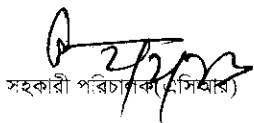 সহকারী পরিচালক(এসিআর)